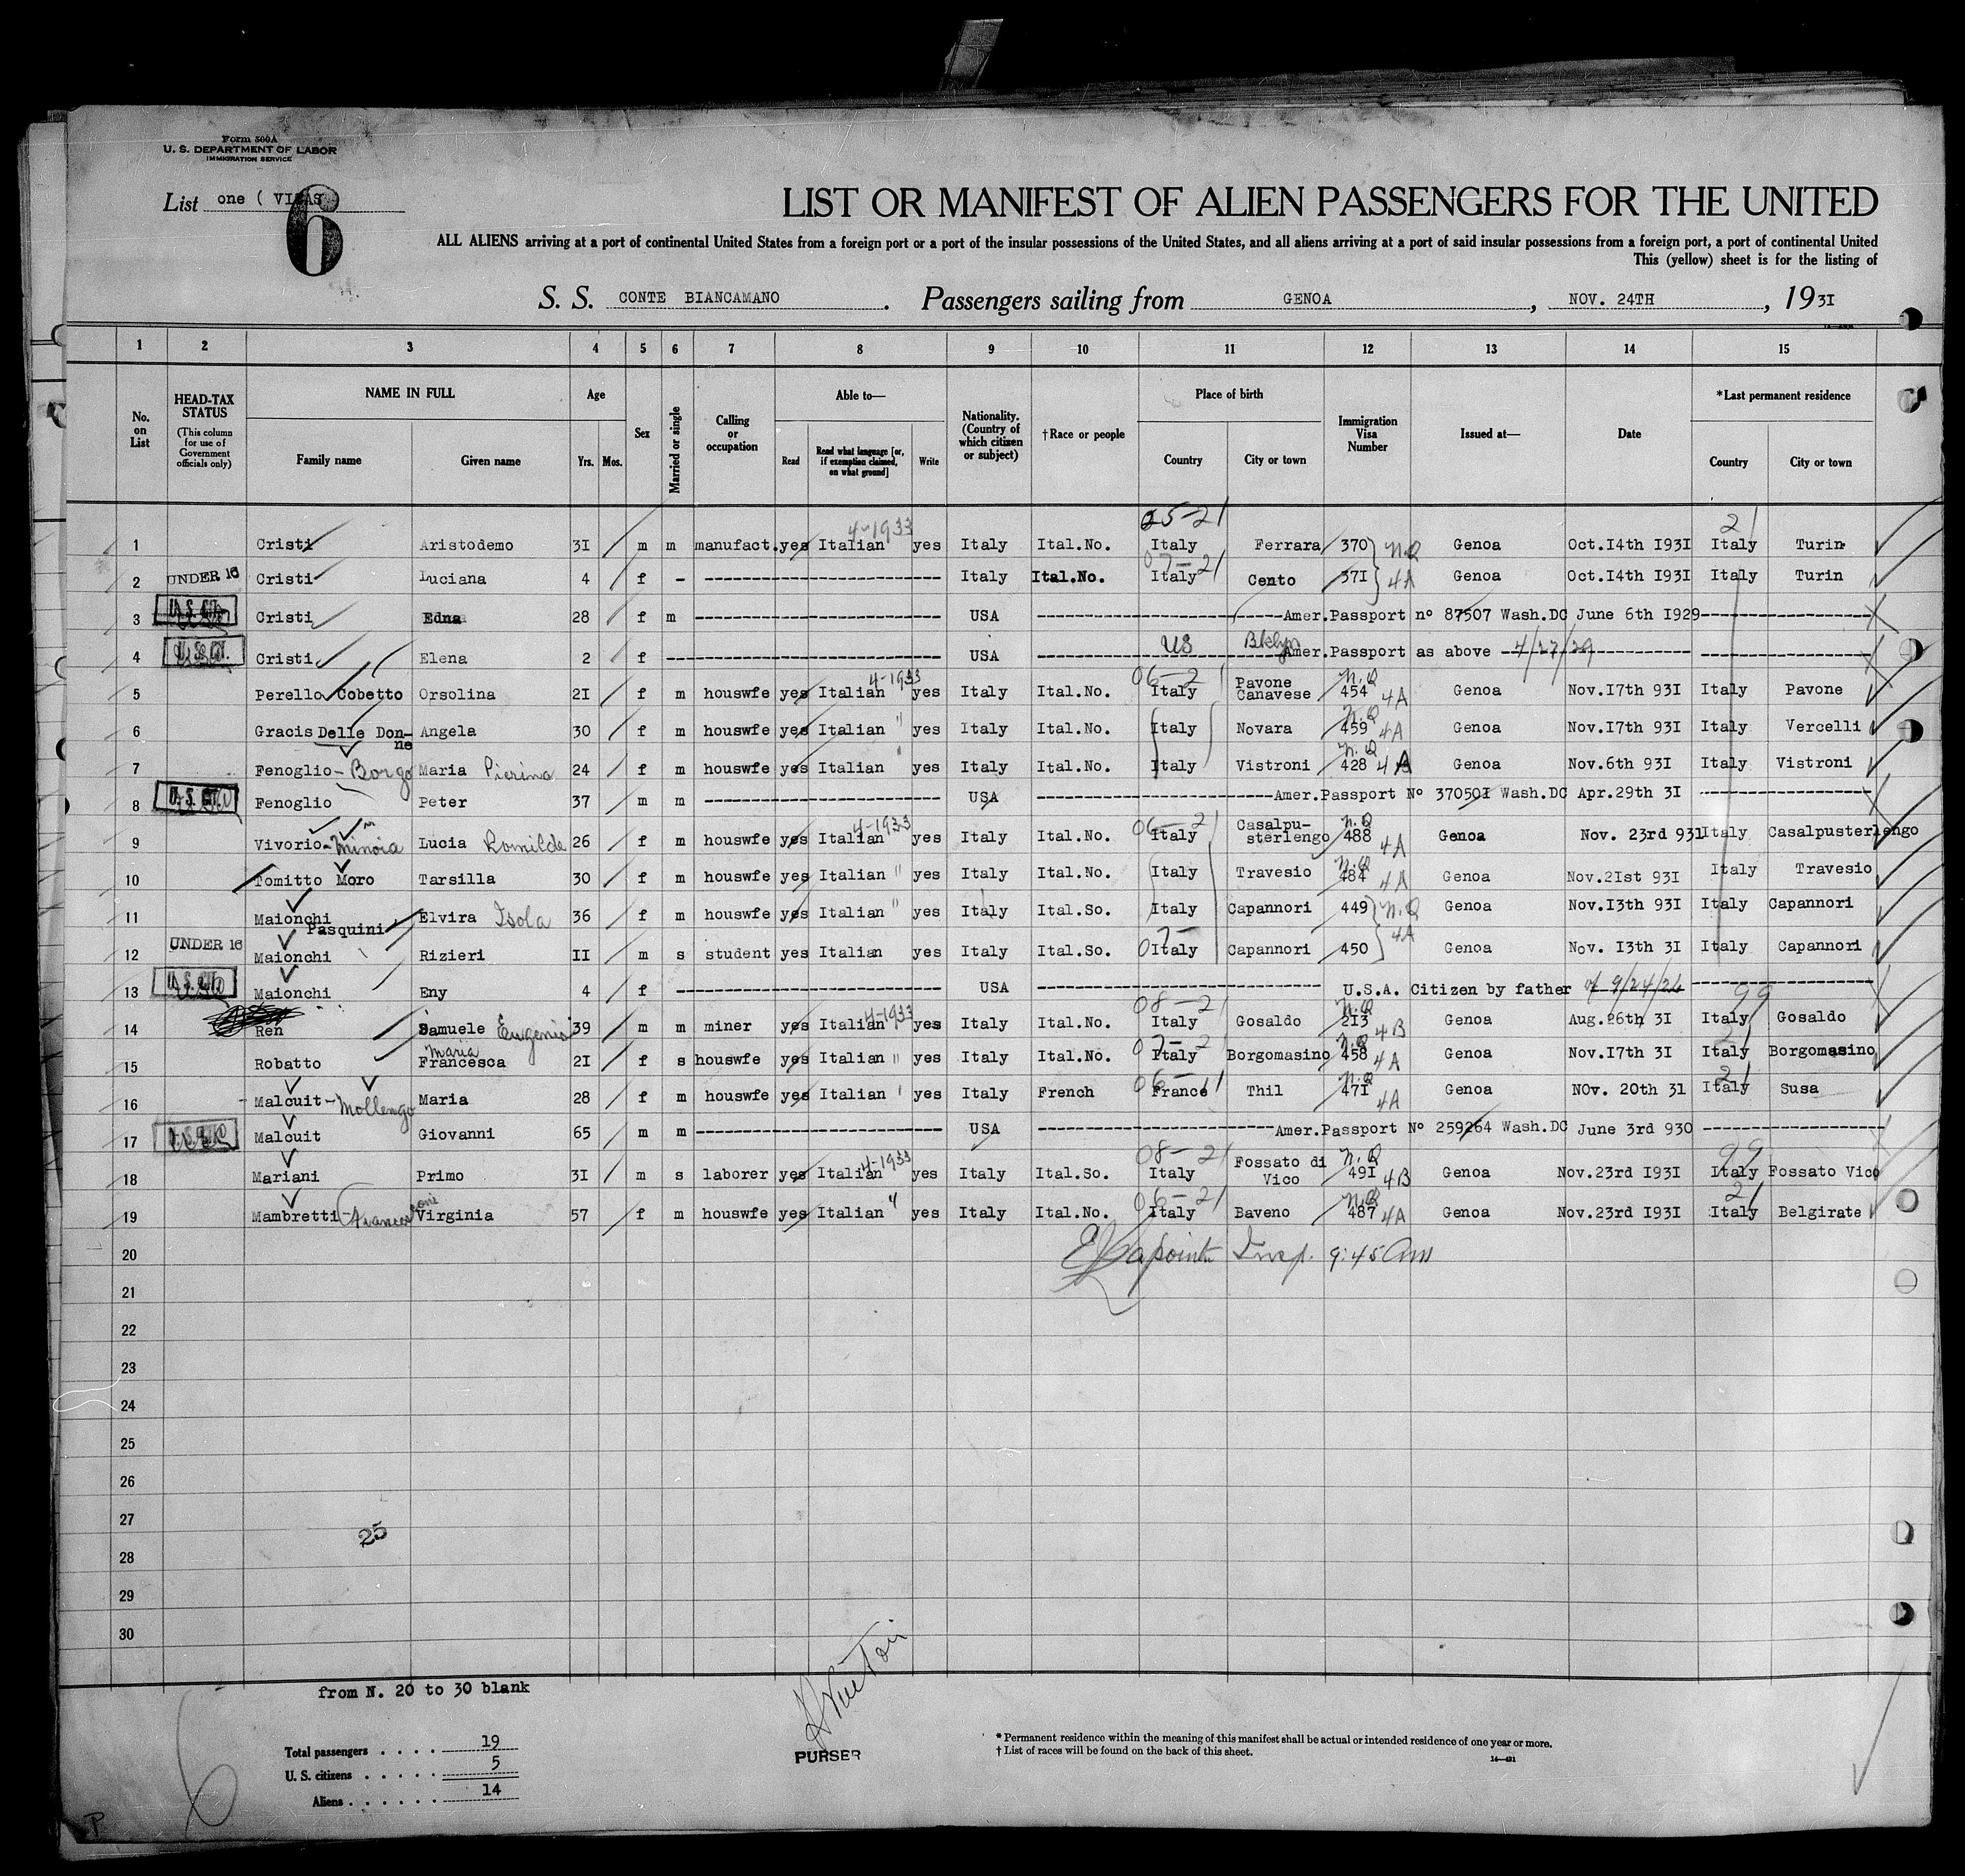 Form 500A
U. S. DEPARTMENT OF LABOR
IMMIGRATION SERVICE
List one ( VISAS )
6
LIST OR MANIFEST OF ALIEN PASSENGERS FOR THE UNITED
ALL ALIENS arriving at a port of continental United States from a foreign port or a port of the insular possessions of the United States, and all aliens arriving at a port of said insular possessions from a foreign port, a port of continental United
This (yellow) sheet is for the listing of
S. S. CONTE BIANCAMANO. Passengers sailing from GENOA, NOV. 24TH, 1931
1 2 3 4 5 6 7 8 9 10 11 12 13 14 15
No. on List
HEAD-TAX STATUS (This column for use of Government officials only)
NAME IN FULL Family name Given name
Age Yrs. Mos.
Sex
Married or single
Calling or occupation
Able to— Read Read what language [or, if exemption claimed, on what ground] Write
Nationality. (Country of which citizen or subject)
†Race or people
Place of birth Country City or town
Immigration Visa Number
Issued at—
Date
*Last permanent residence Country City or town
25-21 21
1 Cristi Aristodemo 3I m m manufact. yes Italian 4-1933 yes Italy Ital.No. Italy Ferrara 370 N.Q Genoa Oct.I4th I93I Italy Turin
2 UNDER 16 Cristi Luciana 4 f - Italy Ital.No. Italy 07-21 Cento 37I 4A Genoa Oct.I4th I93I Italy Turin
3 U.S. Cit. Cristi Edna 28 f m USA Amer.Passport nº 87507 Wash.DC June 6th I929
4 U.S. Cit. Cristi Elena 2 f USA US Bklyn Amer.Passport as above 4/27/29
5 Perello Cobetto Orsolina 2I f m houswfe yes Italian 4-1933 yes Italy Ital.No. Italy 06-21 Pavone Canavese N.Q 454 4A Genoa Nov.I7th 93I Italy Pavone
6 Gracis Delle Don-ne Angela 30 f m houswfe yes Italian " yes Italy Ital.No. Italy Novara N.Q 459 4A Genoa Nov.I7th 93I Italy Vercelli
7 Fenoglio-Borgo Maria Pierina 24 f m houswfe yes Italian " yes Italy Ital.No. Italy Vistroni N.Q 428 4A Genoa Nov.6th 93I Italy Vistroni
8 U.S. Cit. Fenoglio Peter 37 m m USA Amer.Passport Nº 37050I Wash.DC Apr.29th 3I
9 Vivorio-Minoia Lucia Romilda 26 f m houswfe yes Italian 4-1933 yes Italy Ital.No. Italy 06-21 Casalpu-sterlengo N.Q 488 4A Genoa Nov. 23rd 931 Italy Casalpusterlengo
10 Tomitto Moro Tarsilla 30 f m houswfe yes Italian " yes Italy Ital.No. Italy Travesio N.Q 484 4A Genoa Nov.2Ist 93I Italy Travesio
11 Maionchi Pasquini Elvira Isola 36 f m houswfe yes Italian " yes Italy Ital.So. Italy Capannori 449 N.Q Genoa Nov.I3th 93I Italy Capannori
12 UNDER 16 Maionchi Rizieri II m s student yes Italian yes Italy Ital.So. Italy 07- Capannori 450 4A Genoa Nov. I3th 3I Italy Capannori
13 U.S. Cit. Maionchi Eny 4 f USA U.S.A. Citizen by father 9/24/26
14 Ren Samuele Eugenio 39 m m miner yes Italian 4-1933 yes Italy Ital.No. Italy 08-21 Gosaldo N.Q 2I3 4B Genoa Aug.26th 3I Italy 99 Gosaldo
15 Robatto Maria Francesca 2I f s houswfe yes Italian " yes Italy Ital.No. Italy 07-21 Borgomasino N.Q 458 4A Genoa Nov.I7th 3I Italy 21 Borgomasino
16 Malcuit-Mollengo Maria 28 f m houswfe yes Italian " yes Italy French France 06-11 Thil N.Q 47I 4A Genoa NOv. 20th 31 Italy 21 Susa
17 Malcuit Giovanni 65 m m USA Amer.Passport Nº 259264 Wash.DC June 3rd 930
18 Mariani Primo 3I m s laborer yes Italian 4-1933 yes Italy Ital.So. Italy 08-21 Fossato di Vico N.Q 49I 4B Genoa Nov.23rd I93I Italy 99 Fossato Vico
19 Mambretti- Virginia 57 f m houswfe yes Italian " yes Italy Ital.No. Italy 06-21 Baveno N.Q 487 4A Genoa Nov.23rd I93I Italy 21 Belgirate
20 Insp. 9:45 Am
21
22
23
24
25
26
27
25
28
29
30
from N. 20 to 30 blank
Total passengers . . . . 19
U. S. citizens . . . . . 5
Aliens . . . . . . 14
PURSER
* Permanent residence within the meaning of this manifest shall be actual or intended residence of one year or more.
† List of races will be found on the back of this sheet.
P